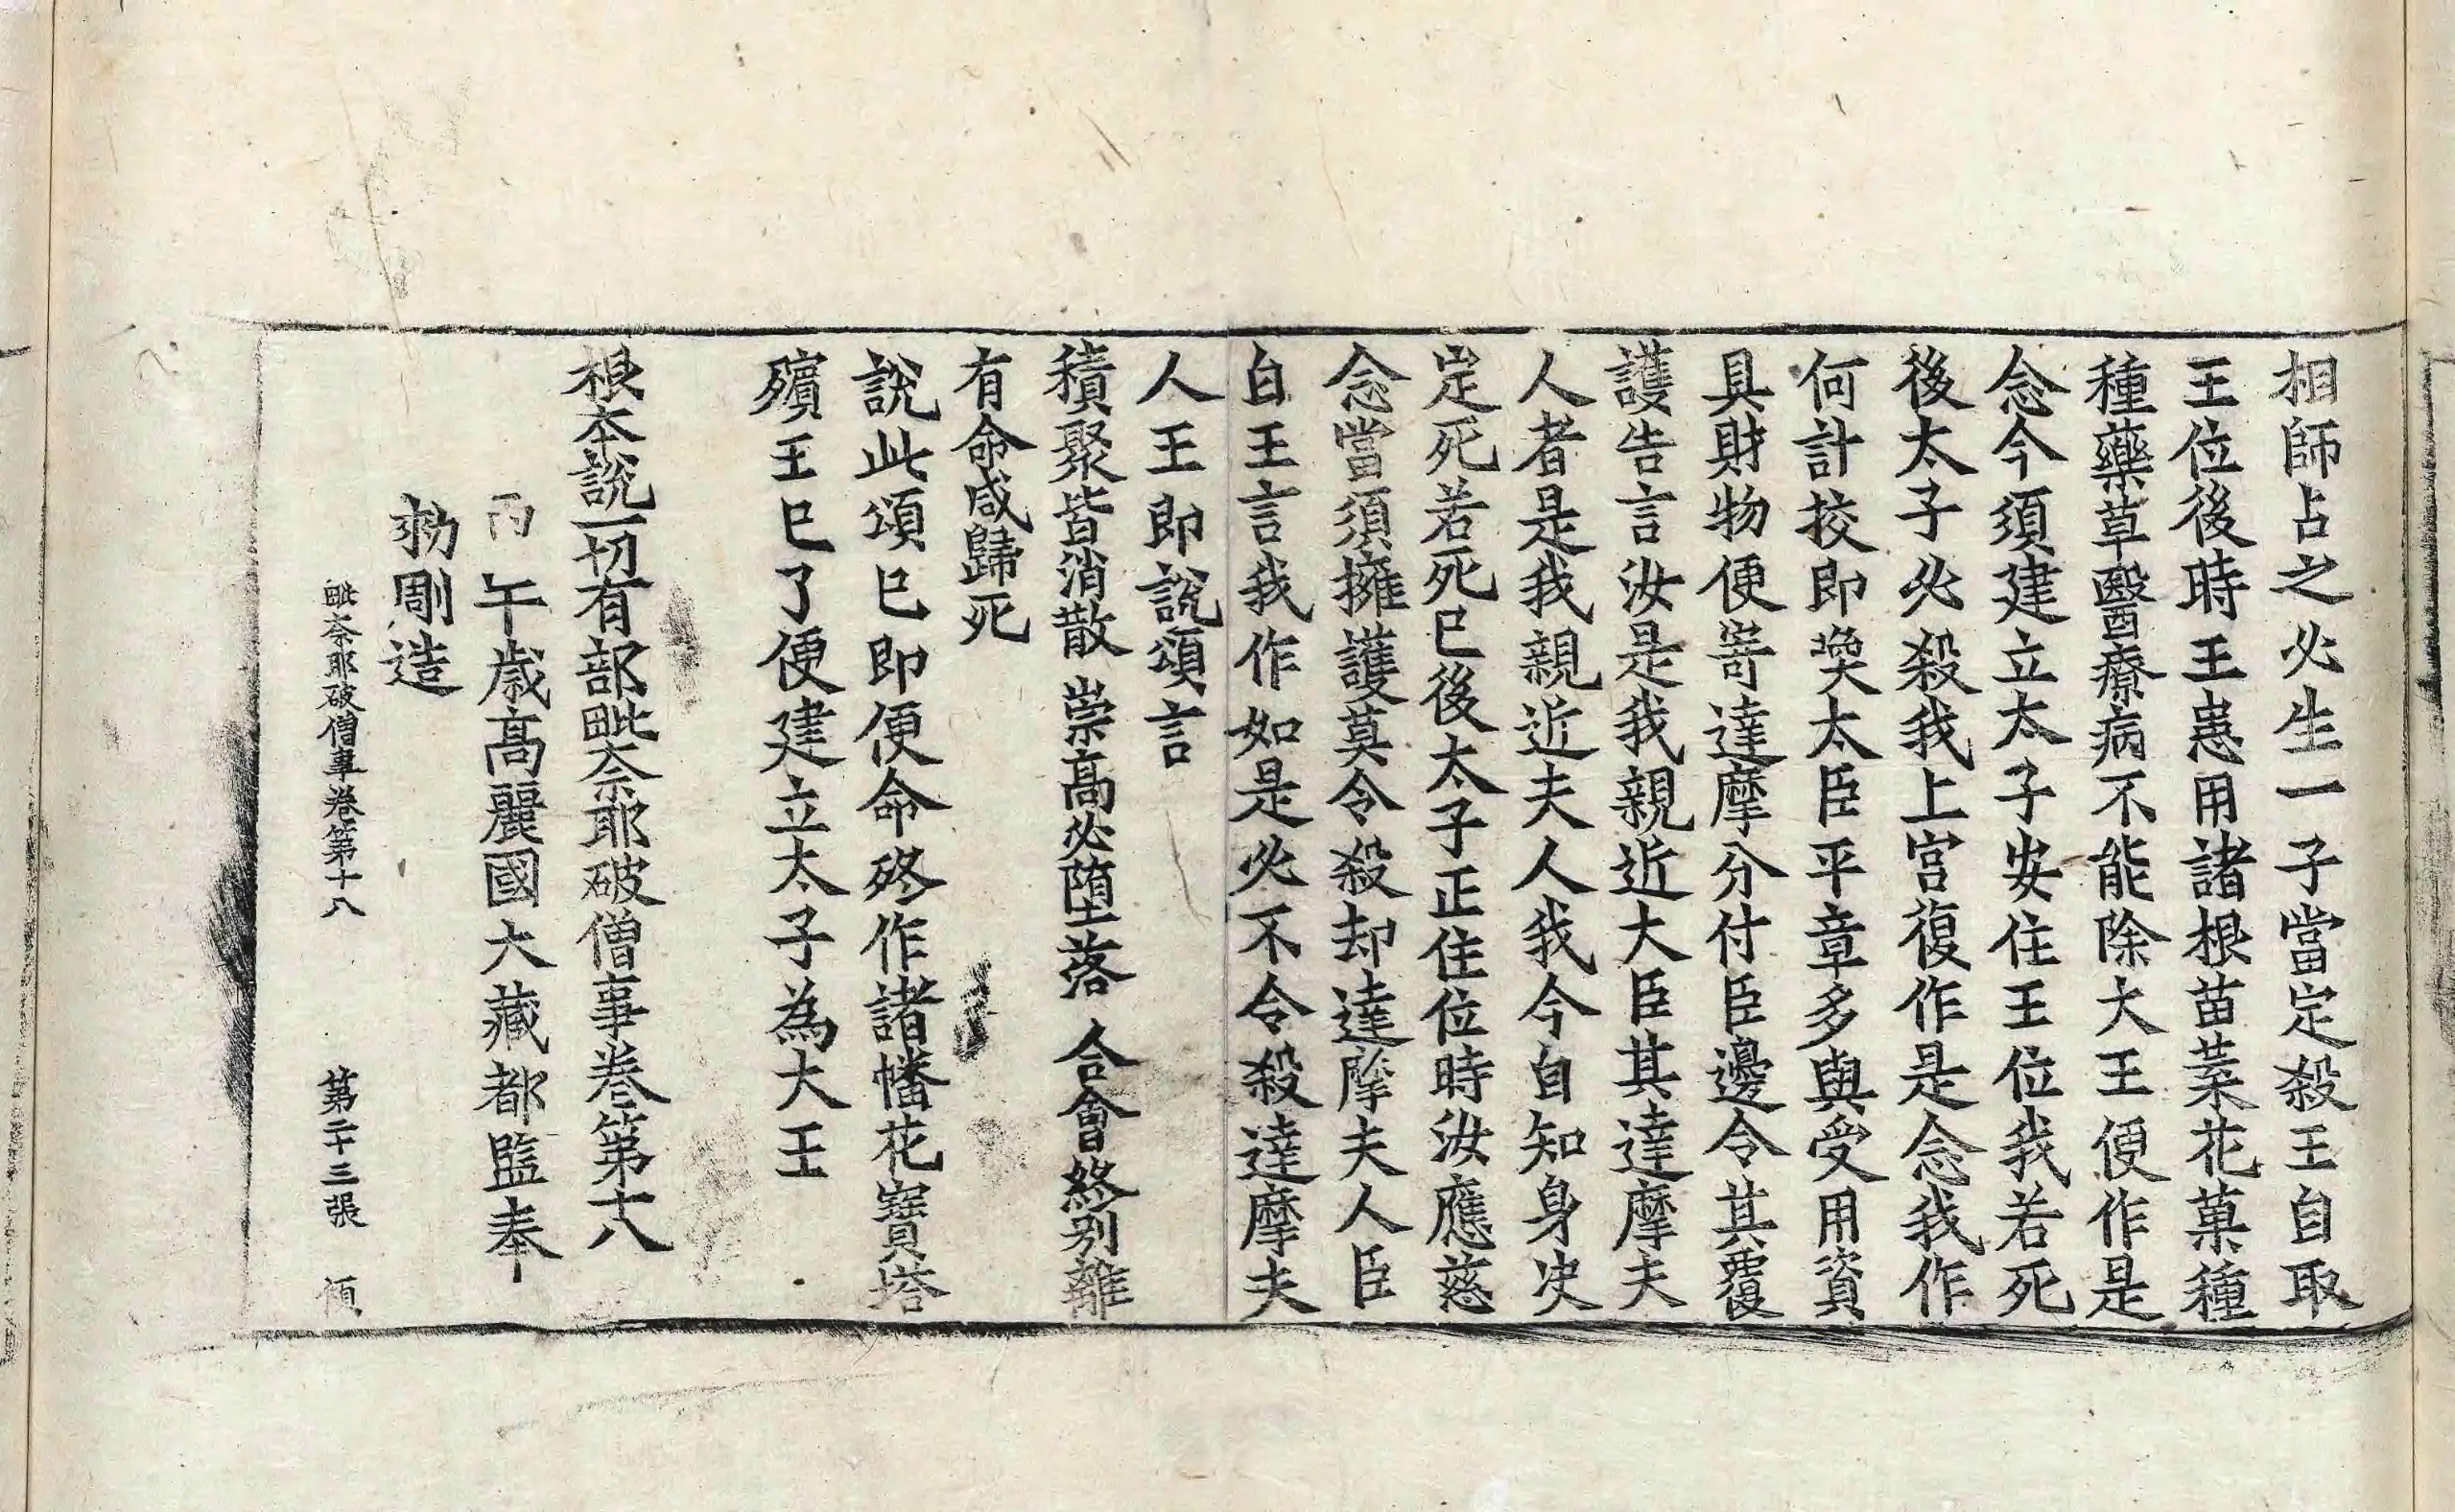 相師占之必生一子當定殺王自取
王位後時王患用諸根苗葉花菓種
種藥草醫療病不能除大王便作是
念今須建立太子安住王位我若死
後太子必殺我上宮復作是念我作
何計挍即喚太臣平章多與受用資
具財物便寄達摩分付臣邊令其覆
護告言汝是我親近大臣其達摩夫
人者是我親近夫人我今自知身決
定死若死已後太子正住位時汝應慈
念當須擁護莫令殺却達摩夫人臣
白王言我作如是必不令殺達摩夫
人王即說頌言
積聚皆消散 崇高必墮落 合會終別離
有命咸歸死
說此頌已即便命終作諸幡花寶塔
殯王已了便建立太子為大王
根本說一切有部毗奈耶破僧事卷第十八
丙午歲高麗國大藏都監奉
勑彫造
毗奈耶破僧事卷第十八 第二十三張